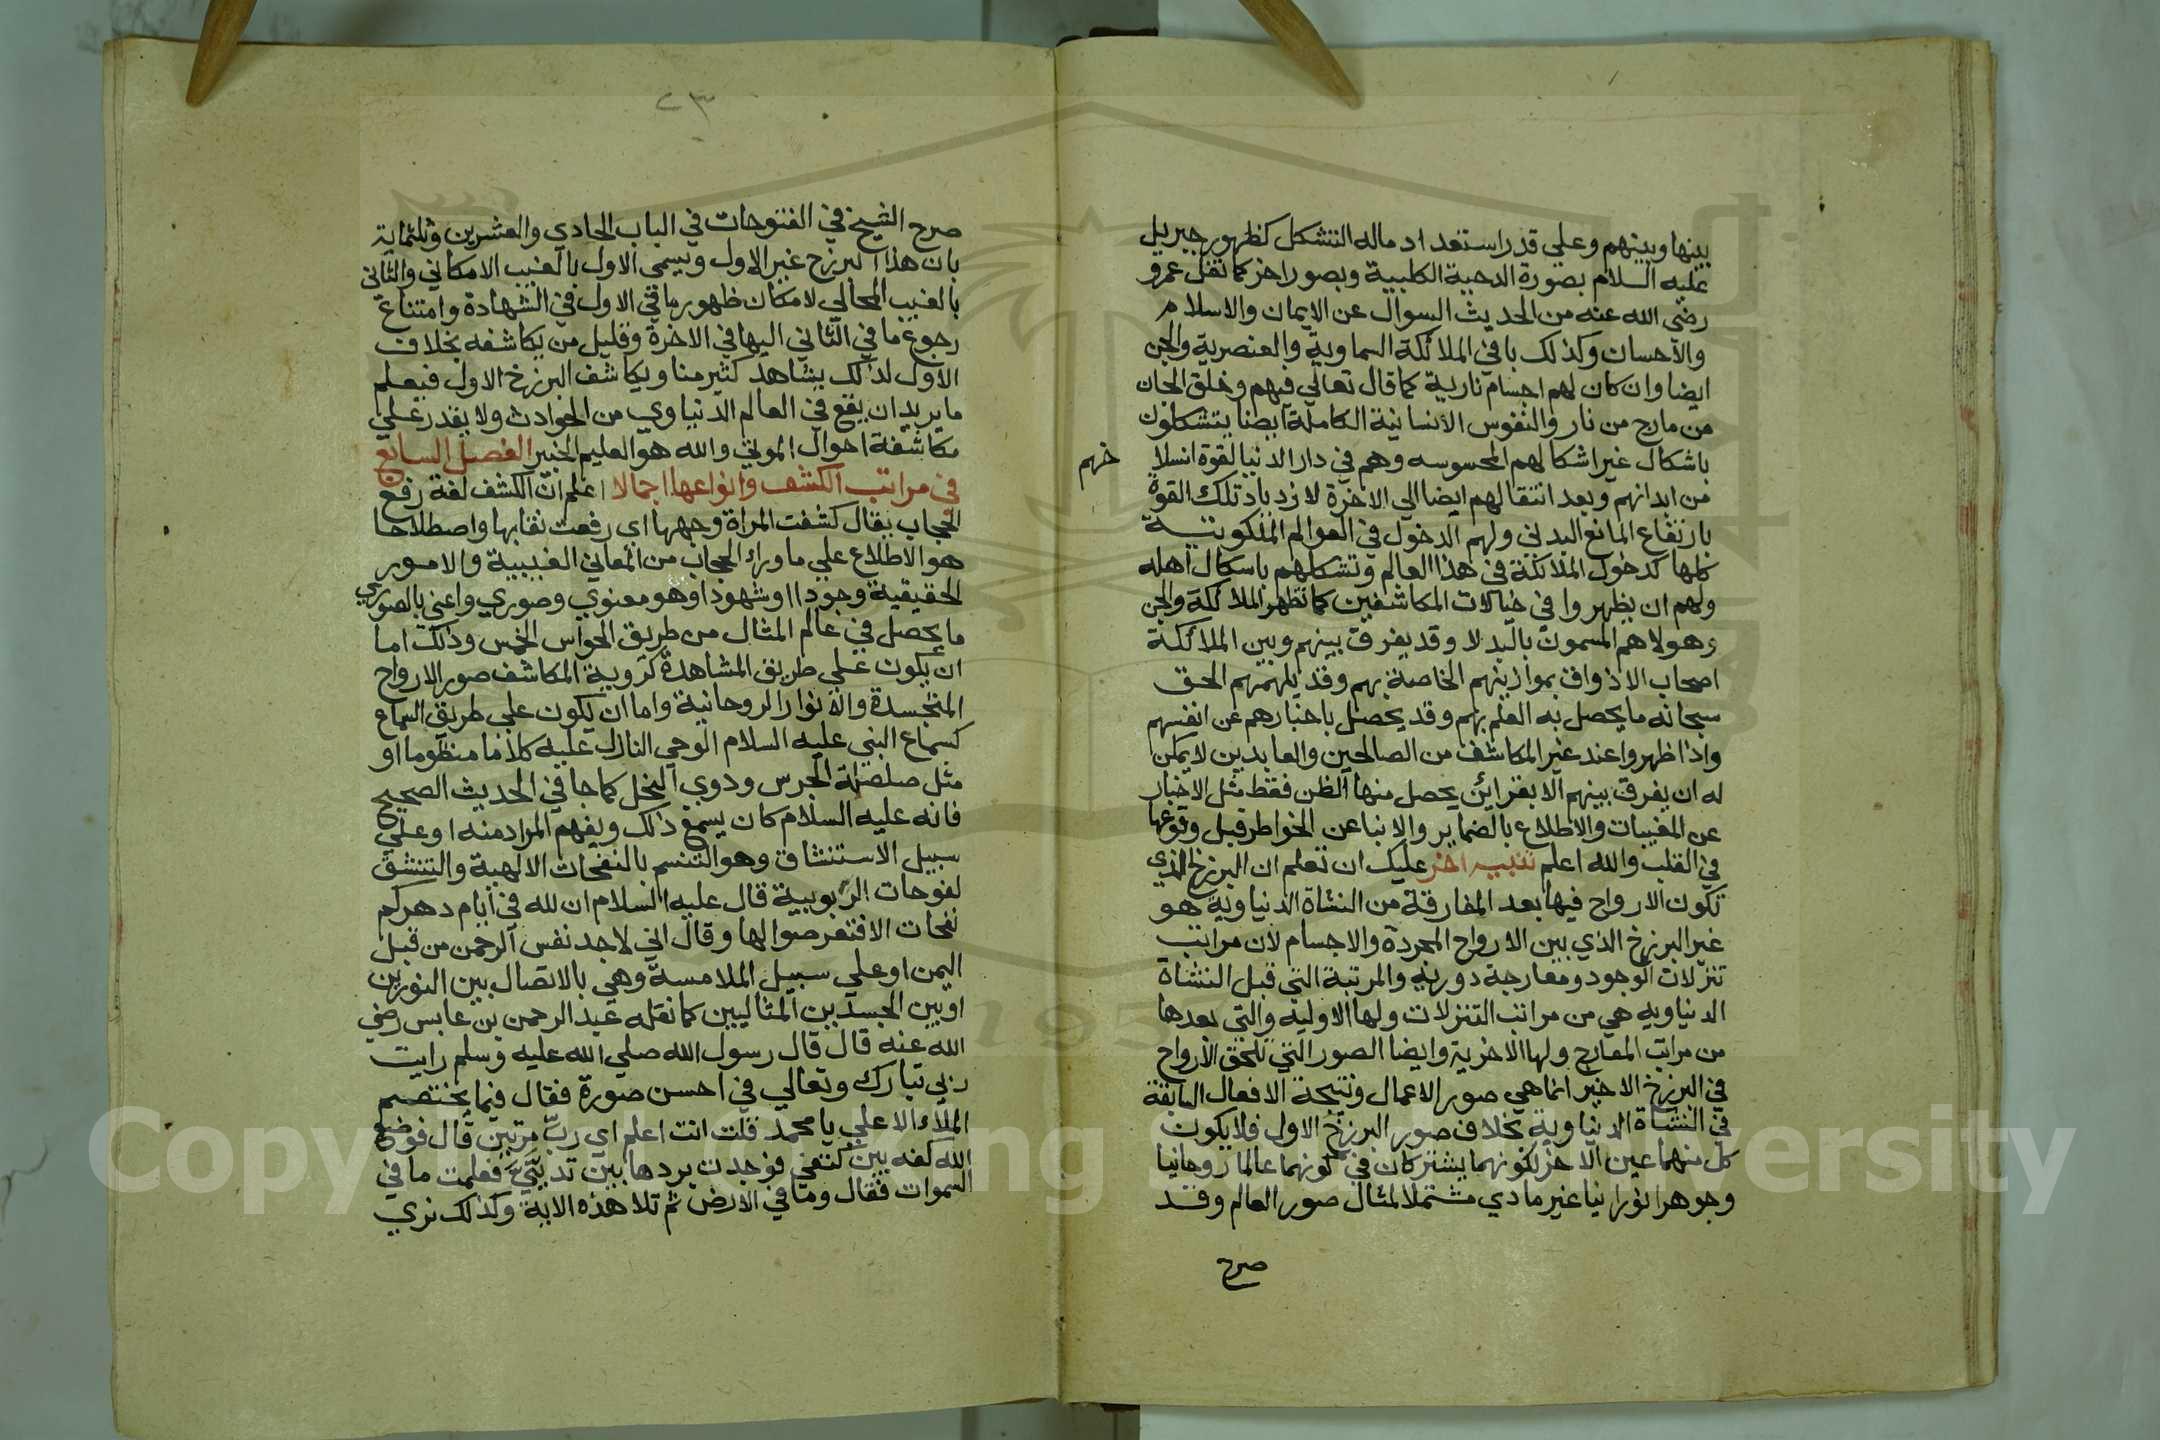 بينها وبينهم وعلي قدر استعداد ماله التشكل كظهور جبريل
عليه السلام بصورة الدحية الكلبية وبصور اخر كما نقل عمرو
رضى الله عنه من الحديث السوال عن الايمان والاسلام
والاحسان وكذلك باقي الملائكة السماوية والعنصرية والجن
ايضا وان كان لهم اجسام نارية كما قال تعالي فيهم وخلق الجان
من مارج من نار والنفوس الانسانية الكاملة ايضا يتشكلون
باشكال غير اشكالهم المحسوسه وهم في دار الدنيا لقوة انسلا
خهم
من ابدانهم وبعد انتقالهم ايضا الي الاخرة لازدياد تلك القوة
بارتفاع المانع البدني ولهم الدخول في العوالم الملكوتية
كلها كدخول الملائكة في هذا العالم وتشكلهم باسكال اهله
ولهم ان يظهروا في خيالات المكاشفين كما تظهر الملائكة والجن
وهولاهم المسمون بالبدلا وقد يفرق بينهم وبين الملائكة
اصحاب الاذواق بموازينهم الخاصة بهم وقد يلهمهم الحق
سبحانه ما يحصل به العلم بهم وقد يحصل باخبارهم عن انفسهم
واذا ظهروا عند غير المكاشف من الصالحين والعابدين لا يمكن
له ان يفرق بينهم الا بقراين يحصل منها الظن فقط مثل الاخبار
عن المغيبات والاطلاع بالضماير والانبا عن الخواطر قبل وقوعها
في القلب والله اعلم تنبيه اخر عليك ان تعلم ان البرزخ الذي
تكون الارواح فيها بعد المفارقة من النشاة الدنياوية هو
غير البرزخ الذي بين الارواح المجردة والاجسام لان مراتب
تنزلات الوجود ومعارجة دورية والمرتبة التي قبل النشاة
الدنياويه هي من مراتب التنزلات ولها الاوليه والتي بعدها
من مراتب المعارج ولها الاخرية وايضا الصور التي تلحق الارواح
في البرزخ الاخير انما هي صور الاعمال ونتيجة الافعال السابقة
في النشاة الدنياوية بخلاف صور البرزخ الاول فلا يكون
كل منهما عين الاخر لكونهما يشتركان في كونهما عالما روحانيا
وجوهرا نورانيا غير مادي مشتملا لمثال صور العالم وقد
صرح
٢٣
صرح الشيخ في الفتوحات في الباب الحادي والعشرين وثلثماية
بان هذا البرزخ غير الاول ويسمى الاول بالغيب الامكاني والثاني
بالغيب المحالي لامكان ظهور ما في الاول في الشهادة وامتناع
رجوع ما في الثاني اليها في الاخرة وقليل من يكاشفه بخلاف
الاول لذلك يشاهد كثير منا ويكاشف البرزخ الاول فيعلم
ما يريد ان يقع في العالم الدنياوي من الحوادث ولا يقدر علي
مكاشفة احوال الموتي والله هو العليم الخبير الفصل السابع
في مراتب الكشف وانواعها اجمالا اعلم ان الكشف لغة رفع
الحجاب يقال كشفت المراة وجهها اي رفعت نقابها واصطلاحا
هو الاطلاع علي ما وراء الحجاب من المعاني الغيبية والامور
الحقيقية وجودا او شهودا وهو معنوي وصوري واعني بالصوري
ما يحصل في عالم المثال من طريق الحواس الخمس وذلك اما
ان يكون علي طريق المشاهدة كروية المكاشف صور الارواح
المتجسدة والانوار الروحانية واما ان يكون علي طريق السماع
كسماع النبي عليه السلام الوحي النازل عليه كلاما منظوما او
مثل صلصلة الجرس ودوي النحل كما جا في الحديث الصحيح
فانه عليه السلام كان يسمع ذلك ويفهم المراد منه او علي
سبيل الاستنشاق وهو التنسم بالنفحات الالهية والتنشق
لفوحات الربوبية قال عليه السلام ان لله في ايام دهركم
نفحات الا فتعرضوا لها وقال اني لاجد نفس الرحمن من قبل
اليمن او علي سبيل الملامسة وهي بالاتصال بين النورين
او بين الجسدين المثاليين كما نقله عبد الرحمن بن عابس رضي
الله عنه قال قال رسول الله صلي الله عليه وسلم رايت
ربي تبارك وتعالي في احسن صورة فقال فيما يختصم
الملاء الاعلي يا محمد قلت انت اعلم اي رب مرتين قال فوضع
الله كفه بين كتفي فوجدت بردها بين ثديي فعلمت ما في
السموات فقال وما في الارض ثم تلا هذه الاية وكذلك نري
Copyright © King Saud University